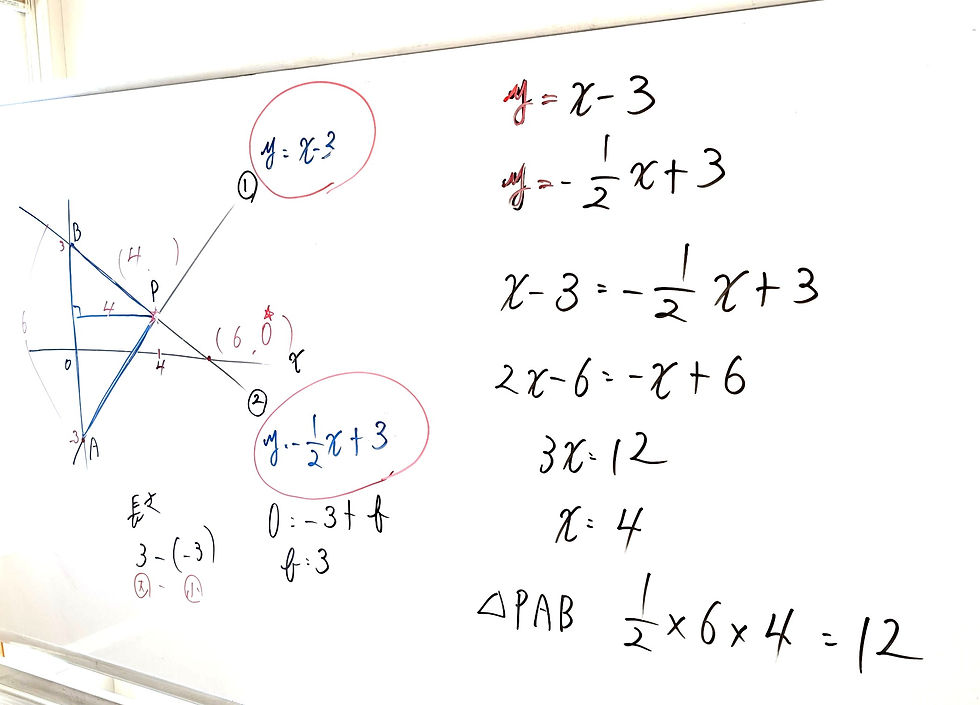 y = x-3
①
B
3
(4, )
P
4
6
(6, 0)
O
4
x
②
-3
A
y = -1/2 x + 3
長さ
3-(-3)
大 - 小
0 = -3 + b
b = 3
y = x-3
y = -1/2 x + 3
x-3 = -1/2 x + 3
2x-6 = -x + 6
3x = 12
x = 4
△PAB 1/2 × 6 × 4 = 12